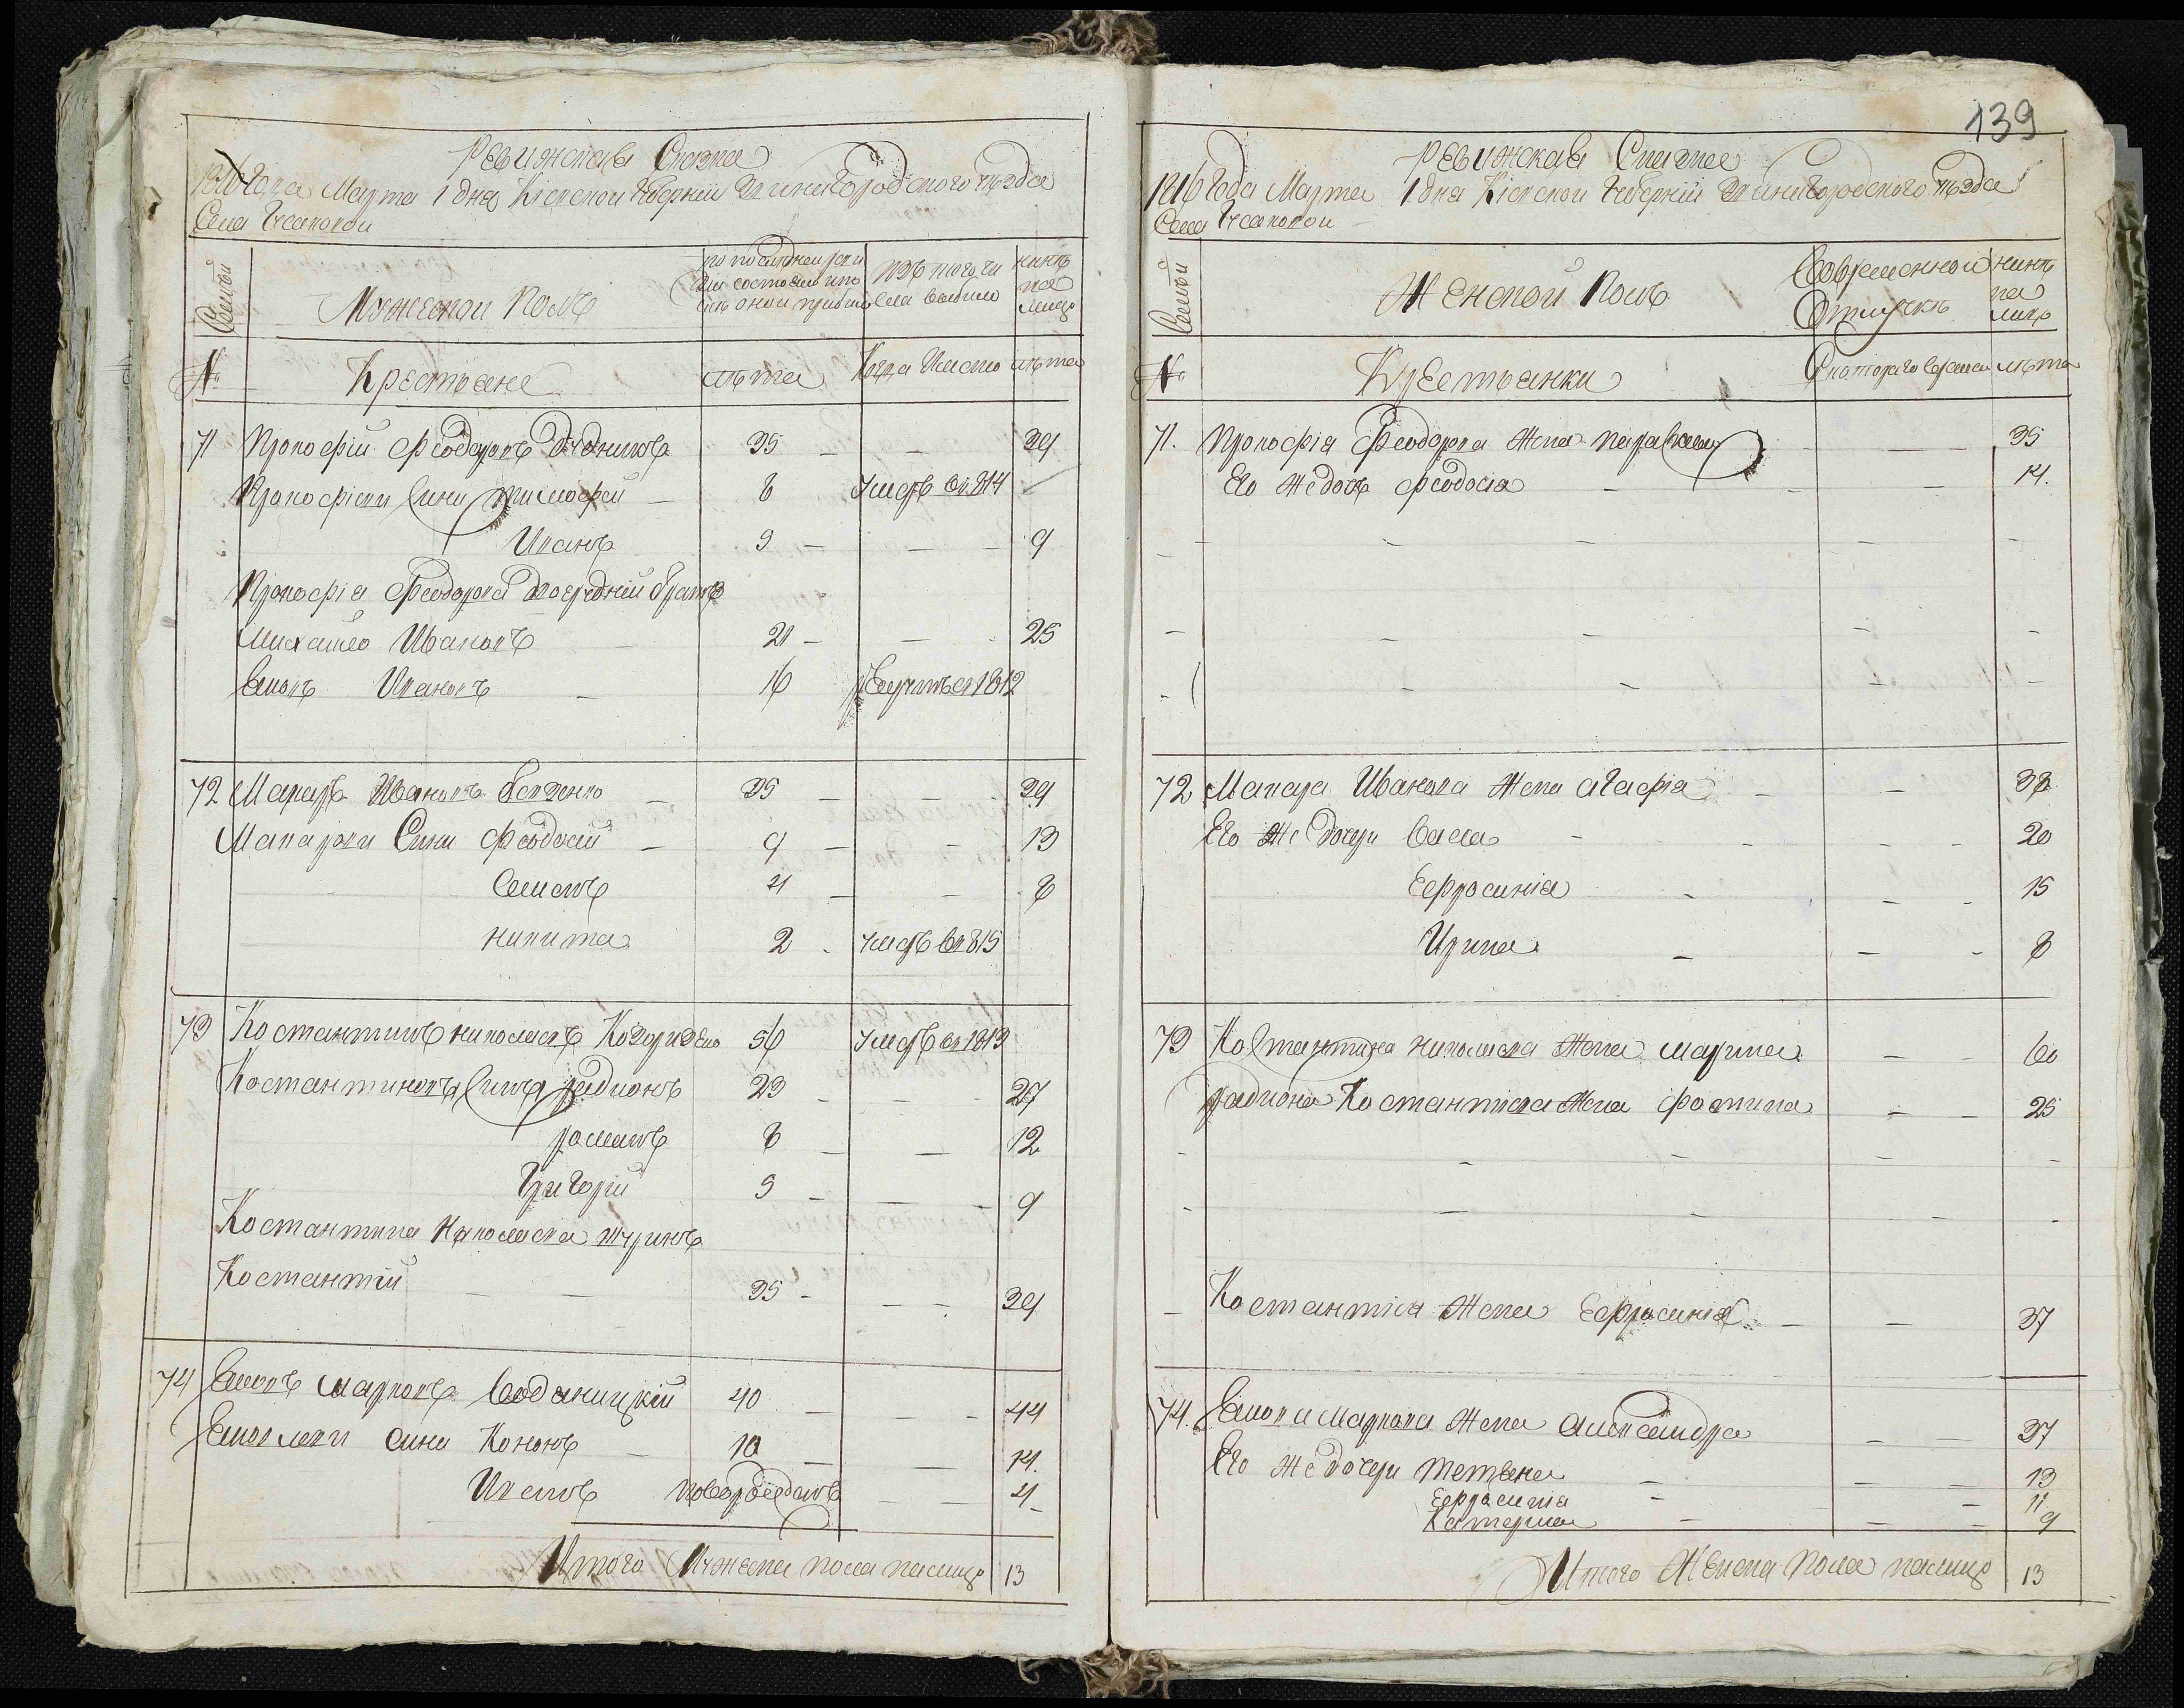 Ревижская Сказка
1816 Года Марта 1 дня Кіевской Губерніи Звинигородского Уѣзда
Села
Семьи
Мужескои Полъ
по последнеи ревизіи состояло и после оной прибыло
изъ того числа выбыло
нинѣ на лицо
№
Крестьяне
лѣта
Когда Имено
лѣта
71 Прокофій Феодоровъ Дудникъ 35 — — 39
Прокофіеви Сини Тимофей — 8 Умеръ въ 814
Иванъ 5 — — 9
Прокофія Феодорова двоюродній братъ
Михайло Ивановъ 21 — — 25
Емокъ Ивановъ 16 въ 1812
72 Макаръ Ивановъ 35 — — 39
Макарови Сини Феодосій — 9 — — 13
Семенъ 4 — — 8
Никита 2 Умеръ въ 815
73 Костантинъ Николаевъ 56 Умеръ въ 1813
Костантиновъ Синъ Радионъ 23 — — 27
Романъ 8 — — 12
Григорій 5 — — 9
Костантина Николаева шуринъ
Костантій — — 35 — — 39
74 Марковъ Водяницкій 40 — — 44
Сини Кононъ — 10 — — 14
Иванъ новорожденъ — — 4
Итого Мужеска пола налицо 13
139
Ревижская Сказка
1816 Года Марта 1 дня Кіевской Губерніи Звинигородского Уѣзда
Села
Семьи
Женской Полъ
Во временной Отлучкѣ
нинѣ на лицо
№
Крестьянки
С которого времени
лѣта
71. Прокофія Феодорова Жена Параскева — — 35
Его же дочь Феодосія — — 14.
72 Макара Иванова Жена Агафія — — 38
Его же дочери Васса — — 20
Ефросинія — — 15
Ирина — — 8
73 Костантина Николаева Жена Марина — — 60
Радиона Костантіева Жена Фотина — — 25
Костантія Жена Ефросинія — — 37
74. Маркова Жена Александра — — 37
Его же дочери Тетяна — — 13
Ефросинія — — 11
Катерина — — 9
Итого Женска Пола налицо 13